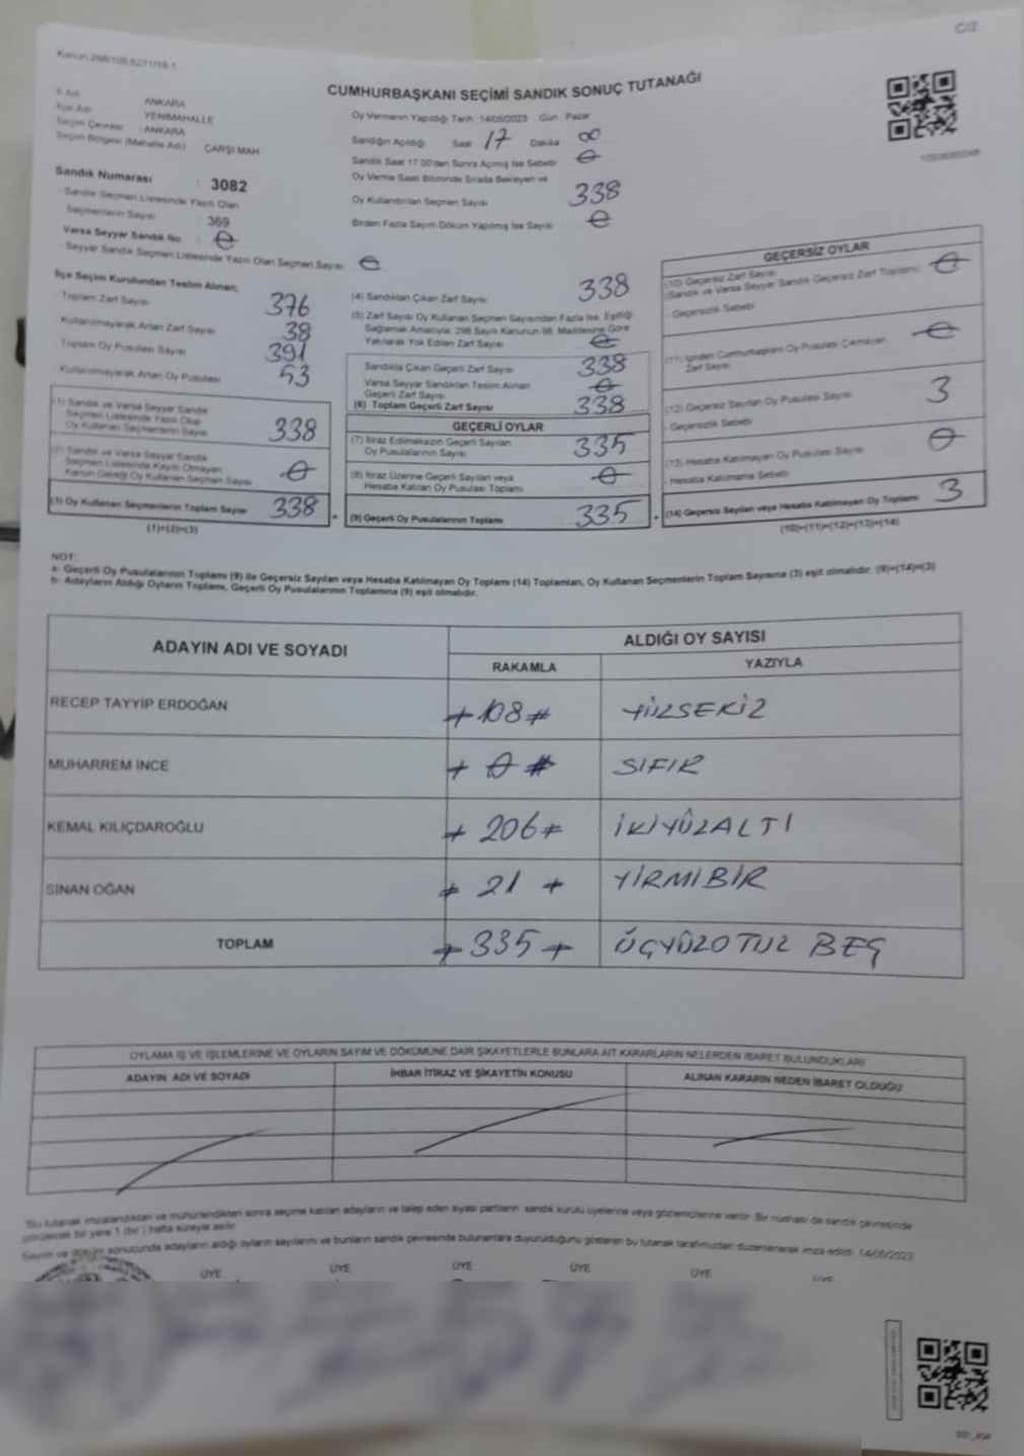 CUMHURBAŞKANI SEÇİMİ SANDIK SONUÇ TUTANAĞI
İl Adı : ANKARA
İlçe Adı : YENİMAHALLE
Seçim Çevresi : ANKARA
Seçim Bölgesi (Mahalle Adı) ÇARŞI MAH
Sandık Numarası : 3082
Sandık Seçmen Listesinde Yazılı Olan
Seçmenlerin Sayısı : 369
Varsa Seyyar Sandık No : 0
Seyyar Sandık Seçmen Listesinde Yazılı Olan Seçmen Sayısı 0
Oy Vermenin Yapıldığı Tarih : 14/05/2023 Gün : Pazar
Sandığın Açıldığı Saat 17 Dakika 00
Sandık Saat 17:00'den Sonra Açılmış İse Sebebi 0
Oy Verme Saati Bitiminde Sırada Bekleyen ve
Oy Kullandırılan Seçmen Sayısı 338
Birden Fazla Sayım Döküm Yapılmış İse Sayısı 0
İlçe Seçim Kurulundan Teslim Alınan;
Toplam Zarf Sayısı 376
Kullanılmayarak Artan Zarf Sayısı 38
Toplam Oy Pusulası Sayısı 391
Kullanılmayarak Artan Oy Pusulası 53
(1) Sandık ve Varsa Seyyar Sandık
Seçmen Listesinde Yazılı Olup
Oy Kullanan Seçmenlerin Sayısı 338
(2) Sandık ve Varsa Seyyar Sandık
Seçmen Listesinde Kayıtlı Olmayan
Kanun Gereği Oy Kullanan Seçmen Sayısı 0
(3) Oy Kullanan Seçmenlerin Toplam Sayısı 338
(1)+(2)=(3)
(4) Sandıktan Çıkan Zarf Sayısı 338
(5) Zarf Sayısı Oy Kullanan Seçmen Sayısından Fazla İse, Eşitliği
Sağlamak Amacıyla, 298 Sayılı Kanunun 98. Maddesine Göre
Yakılarak Yok Edilen Zarf Sayısı 0
Sandıkta Çıkan Geçerli Zarf Sayısı 338
Varsa Seyyar Sandıktan Teslim Alınan
Geçerli Zarf Sayısı 0
(6) Toplam Geçerli Zarf Sayısı 338
GEÇERLİ OYLAR
(7) İtiraz Edilmeksizin Geçerli Sayılan
Oy Pusulalarının Sayısı 335
(8) İtiraz Üzerine Geçerli Sayılan veya
Hesaba Katılan Oy Pusulası Toplamı 0
(9) Geçerli Oy Pusulalarının Toplamı 335
GEÇERSİZ OYLAR
(10) Geçersiz Zarf Sayısı
(Sandık ve Varsa Seyyar Sandık Geçersiz Zarf Toplamı) 0
Geçersizlik Sebebi
(11) İçinden Cumhurbaşkanı Oy Pusulası Çıkmayan
Zarf Sayısı 0
(12) Geçersiz Sayılan Oy Pusulası Sayısı 3
Geçersizlik Sebebi
(13) Hesaba Katılmayan Oy Pusulası Sayısı 0
Hesaba Katılmama Sebebi
(14) Geçersiz Sayılan veya Hesaba Katılmayan Oy Toplamı 3
(10)+(11)+(12)+(13)=(14)
NOT:
a- Geçerli Oy Pusulalarının Toplamı (9) ile Geçersiz Sayılan veya Hesaba Katılmayan Oy Toplamı (14) Toplamları, Oy Kullanan Seçmenlerin Toplam Sayısına (3) eşit olmalıdır. (9)+(14)=(3)
b- Adayların Aldığı Oyların Toplamı, Geçerli Oy Pusulalarının Toplamına (9) eşit olmalıdır.
ADAYIN ADI VE SOYADI ALDIĞI OY SAYISI
RAKAMLA YAZIYLA
RECEP TAYYİP ERDOĞAN +108# YÜZSEKİZ
MUHARREM İNCE + 0 # SIFIR
KEMAL KILIÇDAROĞLU + 206+ İKİYÜZALTI
SİNAN OĞAN + 21 + YİRMİBİR
TOPLAM +335+ ÜÇYÜZOTUZ BEŞ
OYLAMA İŞ VE İŞLEMLERİNE VE OYLARIN SAYIM VE DÖKÜMÜNE DAİR ŞİKAYETLERLE BUNLARA AİT KARARLARIN NELERDEN İBARET BULUNDUKLARI
ADAYIN ADI VE SOYADI İHBAR İTİRAZ VE ŞİKAYETİN KONUSU ALINAN KARARIN NEDEN İBARET OLDUĞU
Bu tutanak imzalandıktan ve mühürlendikten sonra seçime katılan adayların ve talep eden siyasi partilerin sandık kurulu üyelerine veya gözlemcilerine verilir. Bir nüshası da sandık çevresinde
görülecek bir yere 1 (bir) hafta süreyle asılır.
Sayım ve döküm sonucunda adayların aldığı oyların sayılarını ve bunların sandık çevresinde bulunanlara duyurulduğunu gösteren bu tutanak tarafımızdan düzenlenerek imza edildi. 14/05/2023
ÜYE ÜYE ÜYE ÜYE ÜYE ÜYE